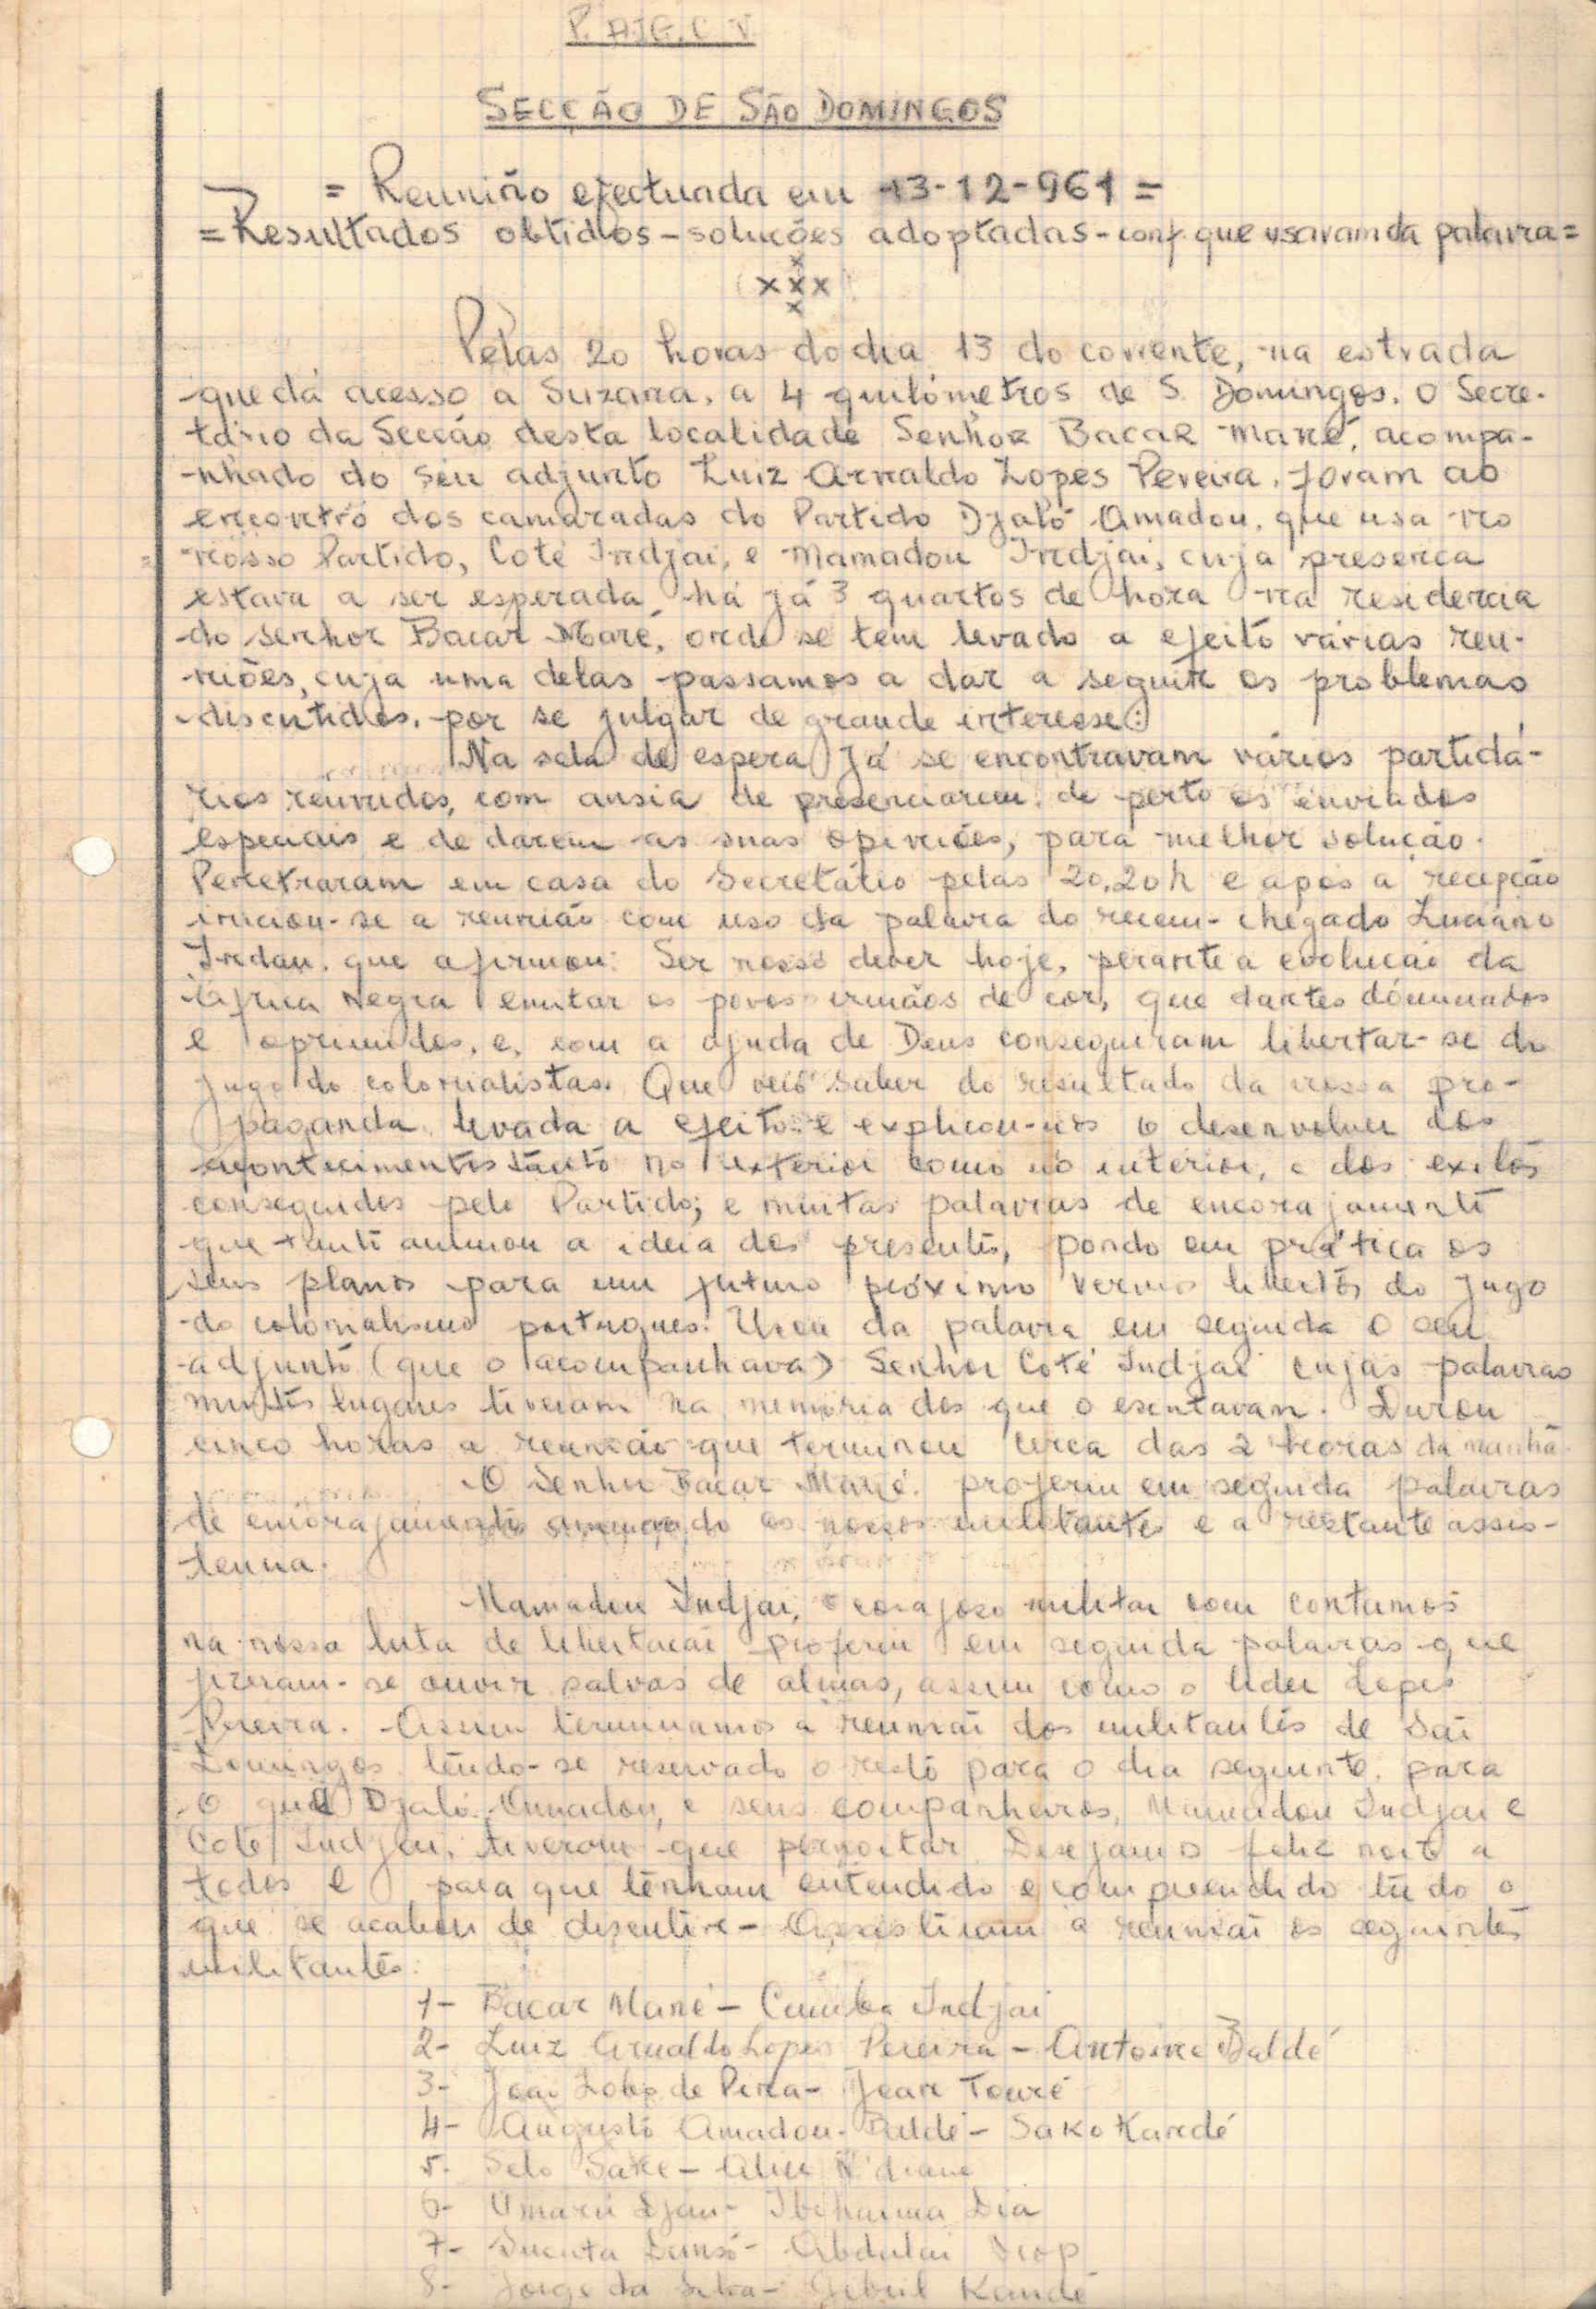 P.A.I.G.C.V.
SECÇÃO DE SÃO DOMINGOS
= Reunião efectuada em 13-12-961 =
= Resultados obtidos - soluções adoptadas - conf. que usavam da palavra =
x
x x x
x
Pelas 20 horas do dia 13 do corrente, na estrada
que dá acesso a Suzana, a 4 quilómetros de S. Domingos. O Secre-
tário da Secção desta localidade Senhor Bacar Mané, acompa-
nhado do seu adjunto Luiz Arnaldo Lopes Pereira, foram ao
encontro dos camaradas do Partido Djaló Amadou, que usa no
nosso Partido, Coté Indjai, e Mamadou Indjai, cuja presença
estava a ser esperada há já 3 quartos de hora na residencia
do senhor Bacar Mané, onde se tem levado a efeito várias reu-
niões, cuja uma delas passamos a dar a seguir os problemas
discutidos, por se julgar de grande interesse:
Na sala de espera já se encontravam vários partidá-
rios reunidos, com ansia de presenciarem de perto os enviados
especiais e de darem as suas opiniões, para melhor solução.
Penetraram em casa do Secretário pelas 20,20h e após a recepção
iniciou-se a reunião com uso da palavra do recem-chegado Luciano
Indau, que afirmou: Ser nosso dever hoje, perante a evolução da
África Negra emitar os povos irmãos de cor, que dantes dominados
e oprimidos, e, com a ajuda de Deus conseguiram libertar-se do
jugo do colonialistas. Que veio saber do resultado da nossa pro-
paganda levada a efeito e explicou-nos o desenvolver dos
acontecimentos tanto no exterior como no interior, e dos exitos
conseguidos pelo Partido; e muitas palavras de encorajamento
que tanto animou a ideia dos presentes, pondo em prática os
seus planos para um futuro próximo vermos libertos do jugo
do colonialismo português. Usou da palavra em seguida o seu
adjunto (que o acompanhava) Senhor Coté Indjai cujas palavras
muitos lugares tiveram na memória dos que o escutavam. Durou
cinco horas a reunião que terminou cerca das 2 horas da manhã.
O Senhor Bacar Mané, proferiu em seguida palavras
de encorajamento animando os nossos militantes e a restante assis-
tencia.
Mamadou Indjai, o corajoso militar com contamos
na nossa luta de libertação proferiu em seguida palavras que
fizeram-se ouvir salvas de almas, assim como o lider Lopes
Pereira. Assim terminamos a reunião dos militantes de São
Domingos tendo-se reservado o resto para o dia seguinte, para
o qual Djaló Amadou, e seus companheiros, Mamadou Indjai e
Coté Indjai, tiveram que pernoitar. Desejamos feliz noite a
todos e para que tenham entendido e compreendido tudo o
que se acabou de discutir - Assistiram a reunião os seguintes
militantes:
1- Bacar Mané - Cumba Indjai
2- Luiz Arnaldo Lopes Pereira - Antoine Baldé
3- João Lobo de Pina - Jean Touré
4- Augusto Amadou Baldé - Sako Kandé
5- Selo Sake - Aliu N'diane
6- Umarú Djau - Ibrhaima Dia
7- Sucuta Dansó - Abdulai Diop
8- Jorge da Silva - Gebril Kandé